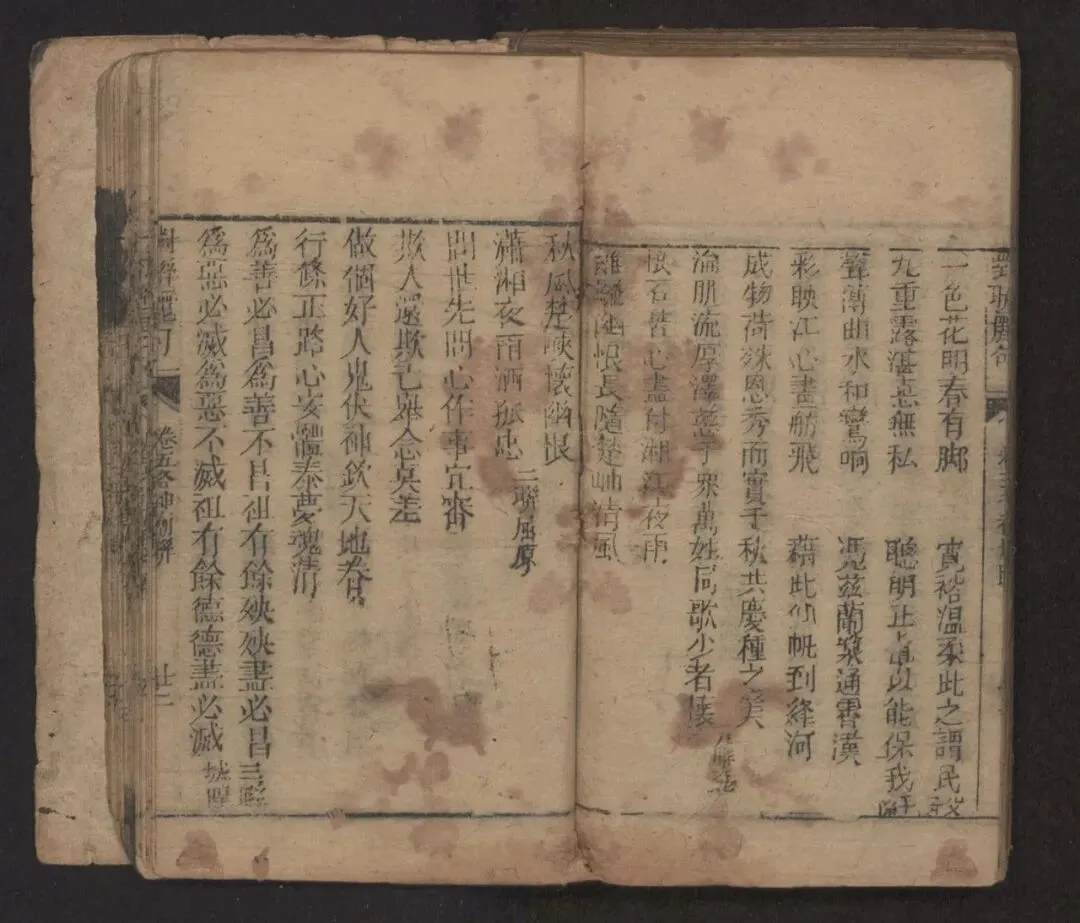 對聯麗句
一色花明春有脚 寬裕温柔此之謂民父
九重露湛志無私 聰明正直以能保我
聲薄曲水和鸞响 憑兹蘭槳通霄漢
彩映江心畫舫飛 藉此仙帆到絳河
成物荷殊恩秀而實千秋共慶種之美
淪肌流厚澤慈于眾萬姓同歌少者懷
恨石 心盡付湘江夜雨
離騷幽恨長隨楚岫清風
秋風楚峽懷幽恨
瀟湘夜雨洒孤忠 二聯屈原
問世先問心作事宜審
欺人還欺己舉念莫差
做個好人鬼伏神欽天地眷
行條正路心安體泰夢魂清
為善必昌為善不昌祖有餘殃殃盡必昌 三聯
為惡必滅為惡不滅祖有餘德德盡必滅 城隍
對聯麗句 卷五 神 廿二